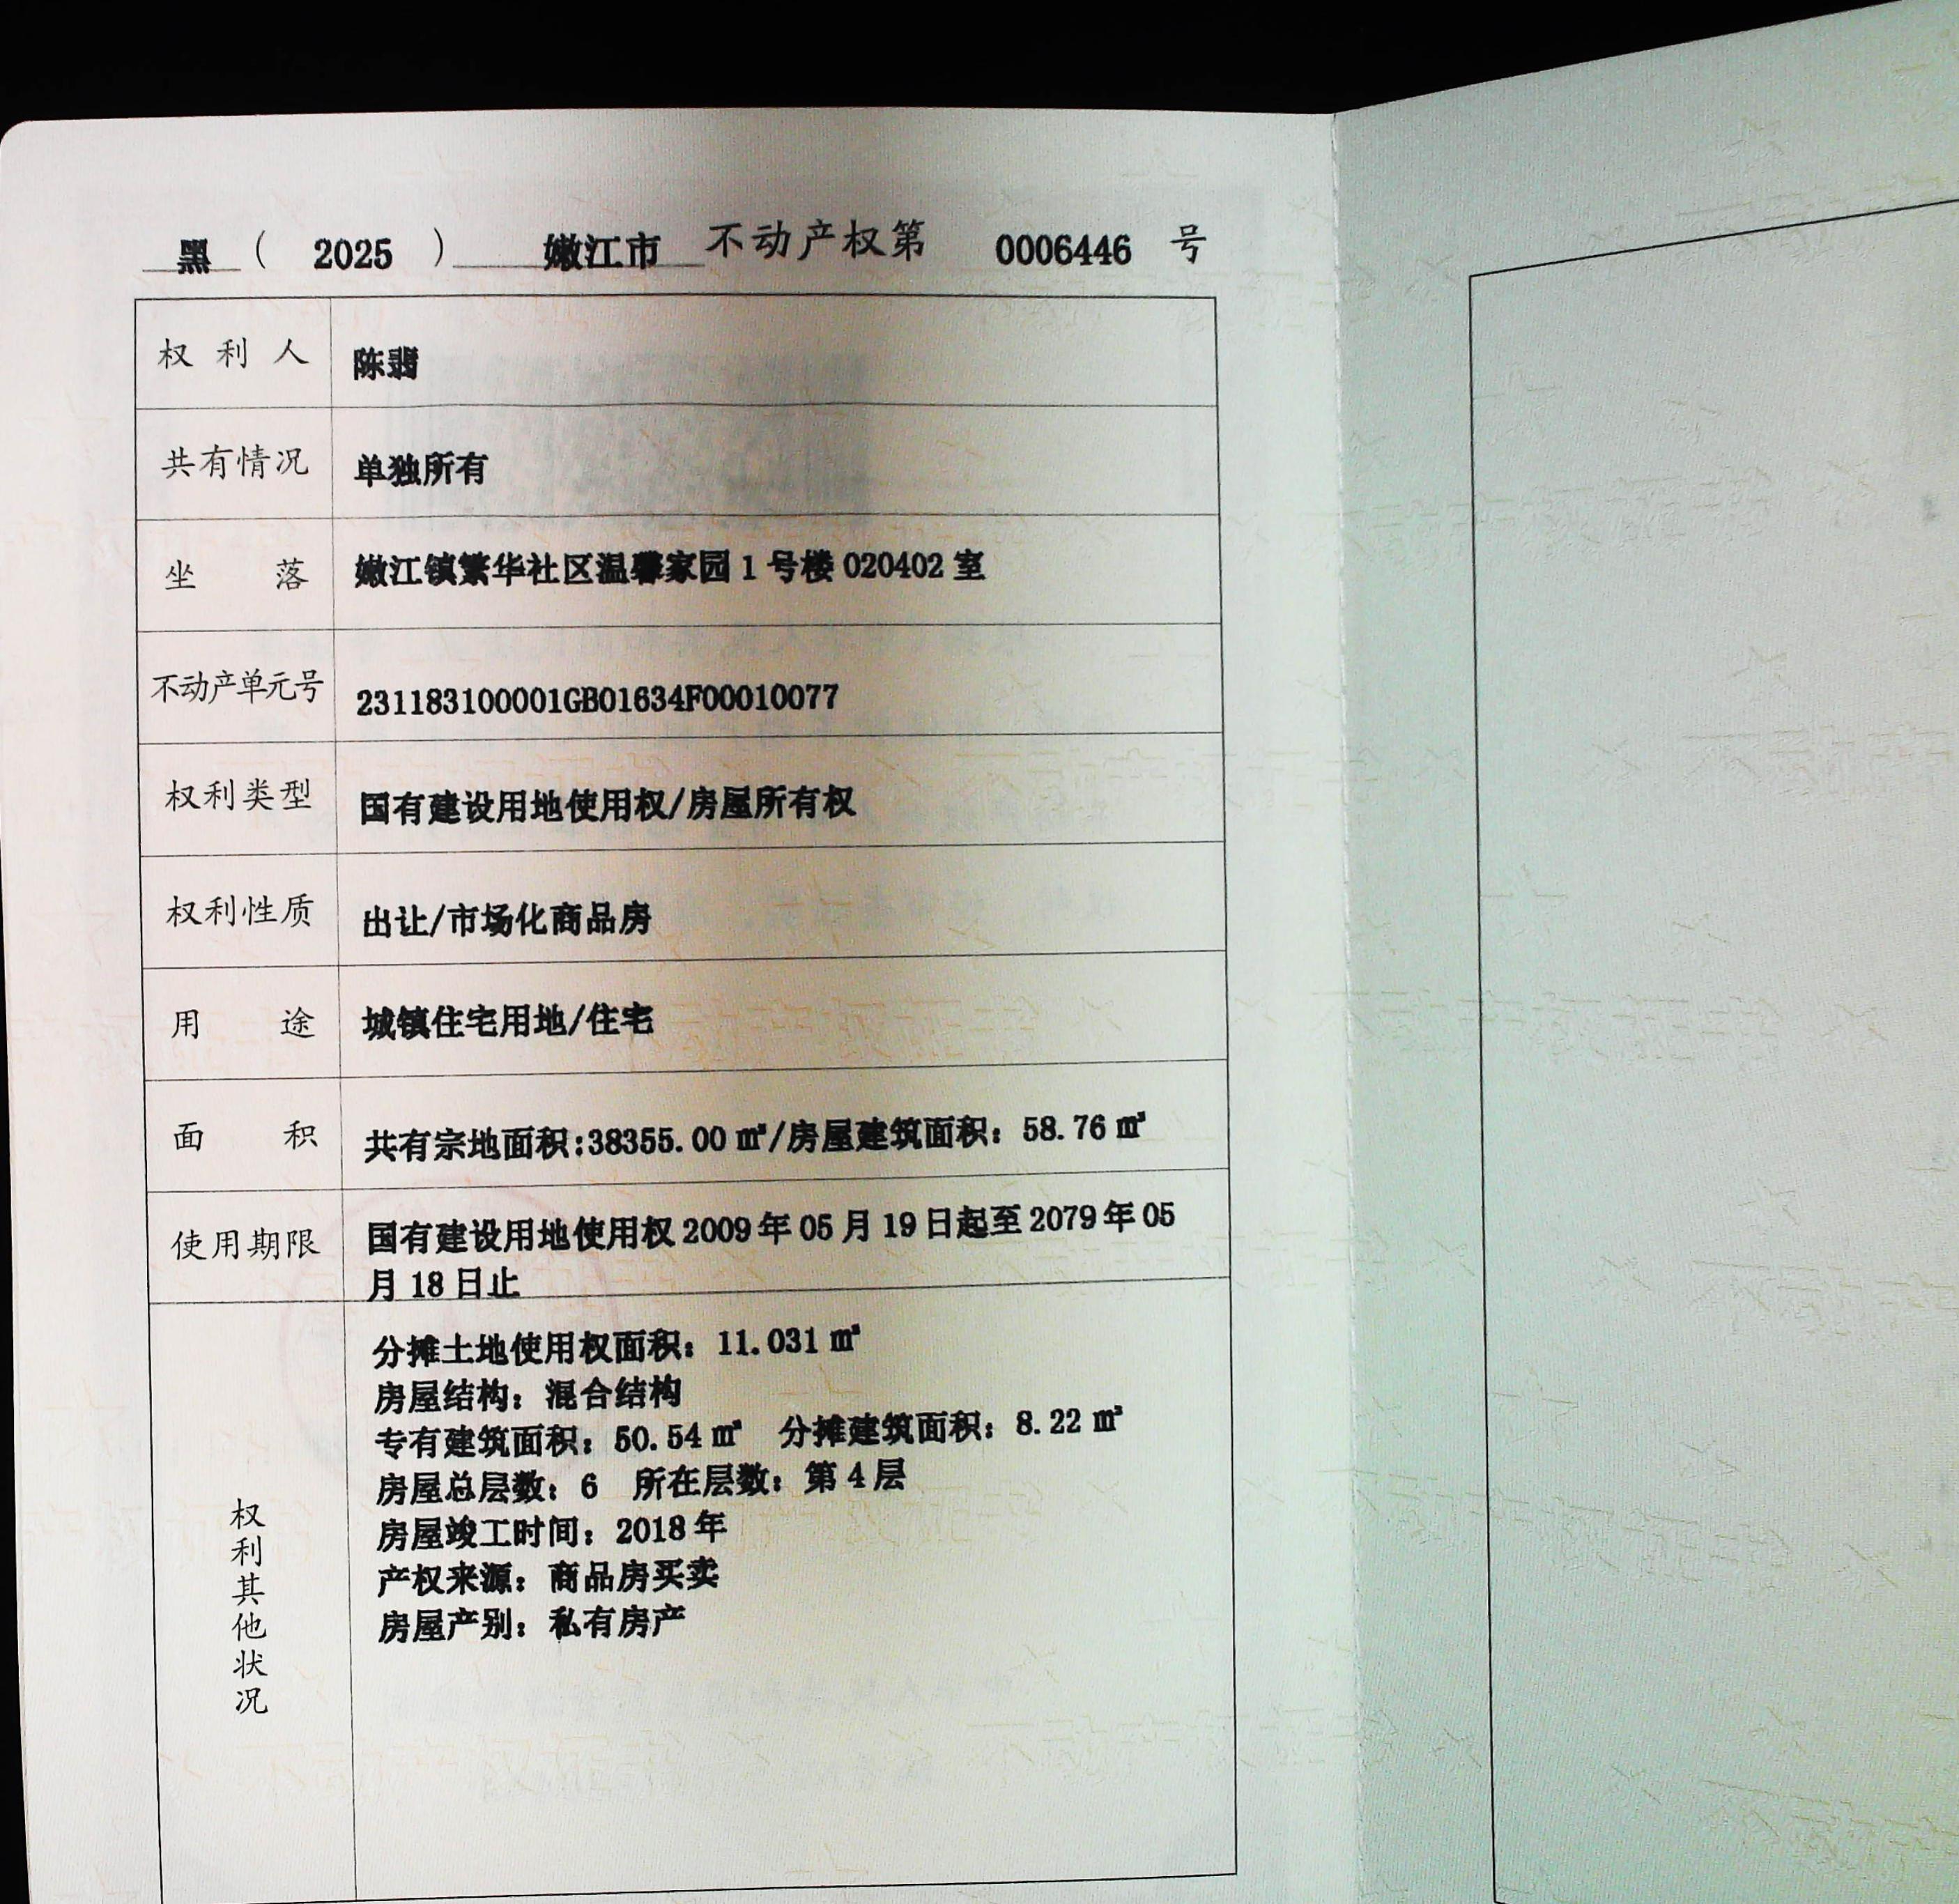 黑 ( 2025 ) 嫩江市 不动产权第 0006446 号
权利人 陈翡
共有情况 单独所有
坐落 嫩江镇繁华社区温馨家园1号楼020402室
不动产单元号 231183100001GB01634F00010077
权利类型 国有建设用地使用权/房屋所有权
权利性质 出让/市场化商品房
用途 城镇住宅用地/住宅
面积 共有宗地面积:38355.00㎡/房屋建筑面积：58.76㎡
使用期限 国有建设用地使用权2009年05月19日起至2079年05
月18日止
权利其他状况
分摊土地使用权面积：11.031㎡
房屋结构：混合结构
专有建筑面积：50.54㎡ 分摊建筑面积：8.22㎡
房屋总层数：6 所在层数：第4层
房屋竣工时间：2018年
产权来源：商品房买卖
房屋产别：私有房产